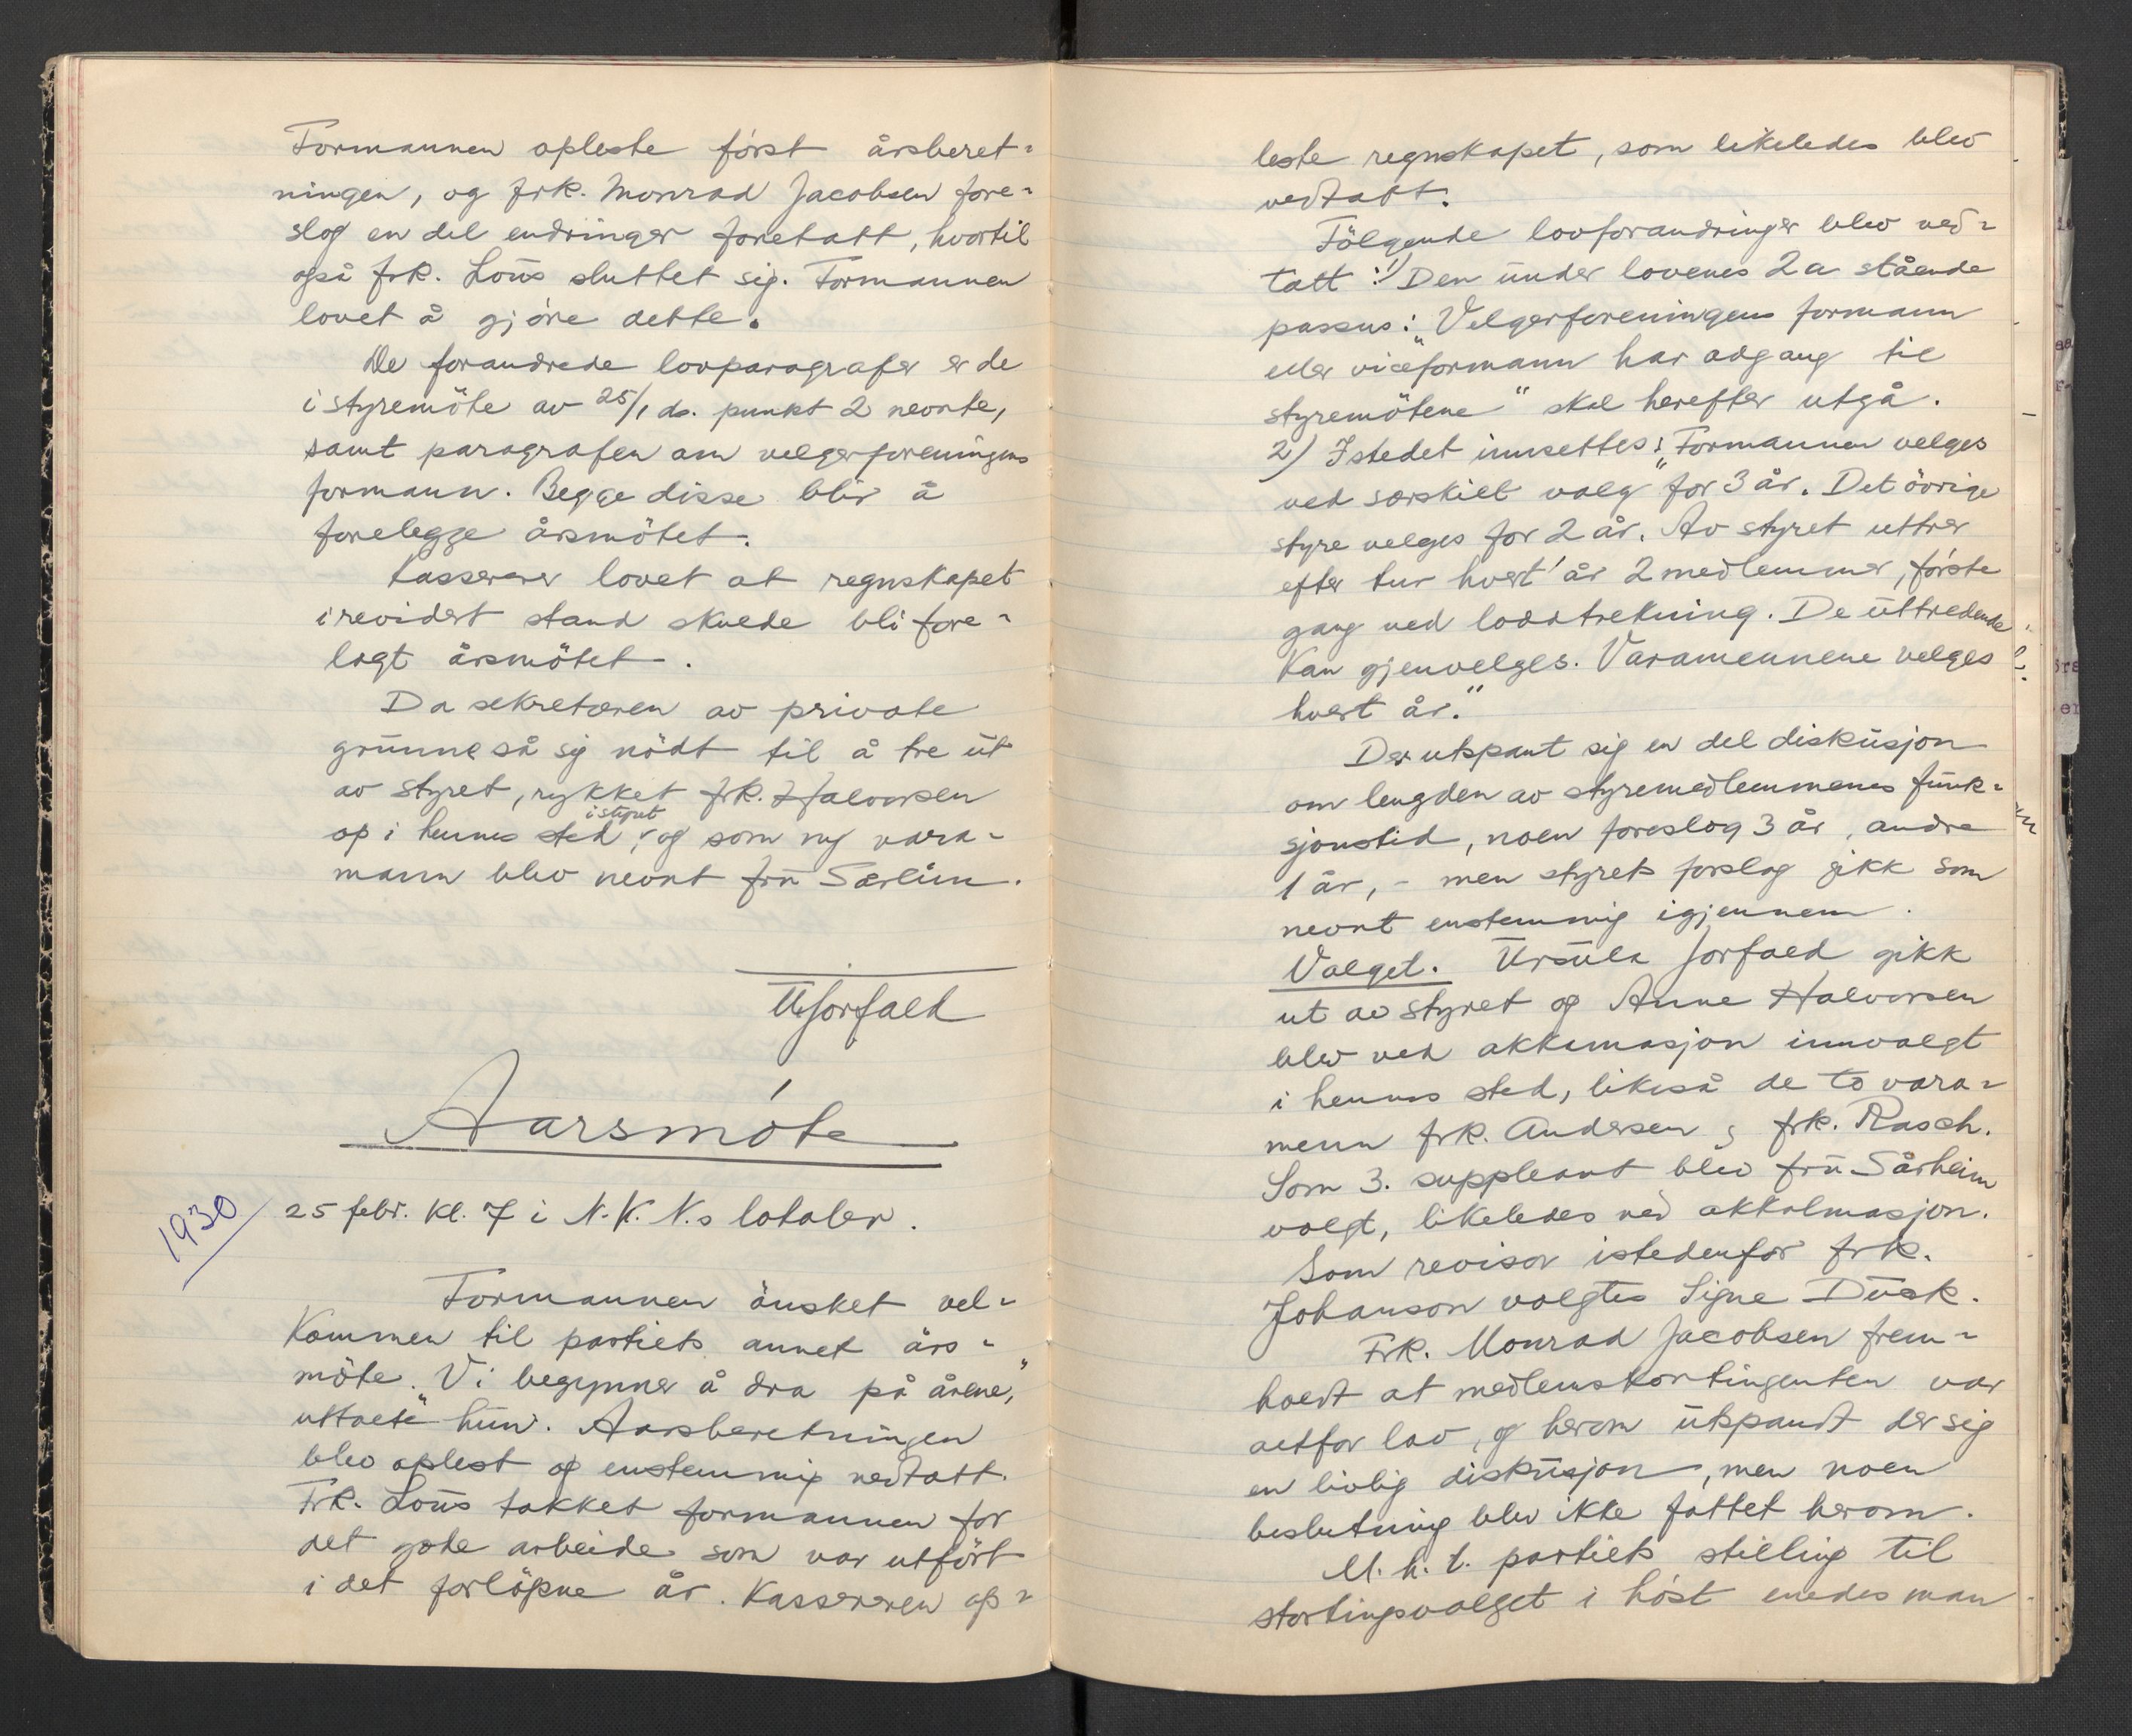 Formannen opleste först årsberet-
ningen, og frk. Monrad Jacobsen fore-
slog en del endringer foretatt, hvortil
også frk. Lous sluttet sig. Formannen
lovet å gjöre dette.
De forandrede lovparagrafer er de
i styremöte av 25/1 ds. punkt 2 nevnte,
samt paragrafen om velgerforeningens
formann. Begge disse blir å
forelegge årsmötet.
Kassererer lovet at regnskapet
i revidert stand skulde bli fore-
lagt årsmötet.
Da sekretæren av private
grunne så sig nödt til å tre ut
av styret, rykket frk. Halvorsen
op i hennes sted i styret og som ny vara-
mann blev nevnt fru Særlim.
U. Jorfald
Aarsmöte
1930
25 febr. kl. 7 i N.K.N.s lokaler.
Formannen önsket vel-
kommen til partiets annet års-
möte. "Vi begynner å dra på årene,"
uttalte hun. Aarsberetningen
blev oplest og enstemmig vedtatt.
Frk. Lous takket formannen for
det gode arbeide som var utfört
i det forlöpne år. Kassereren op-
leste regnskapet, som likeledes blev
vedtatt.
Fölgende lovforandringer blev ved-
tatt: 1) Den under lovenes 2a stående
passus: "Velgerforeningens formann
eller viceformann har adgang til
styremötene" skal herefter utgå.
2) Istedet innsettes: "Formannen velges
ved særskilt valg for 3 år. Det övrige
styre velges for 2 år. Av styret uttrer
efter tur hvert år 2 medlemmer, förste
gang ved loddtrekning. De uttredende
kan gjenvelges. Varamennene velges
hvert år."
Der utspant sig en del diskusjon
om lengden av styremedlemmenes funk-
sjonstid, noen foreslog 3 år, andre
1 år, - men styrets forslag gikk som
nevnt enstemmig igjennem.
Valget. Ursula Jorfald gikk
ut av styret og Anne Halvorsen
blev ved akkmasjon innvalgt
i hennes sted, likeså de to vara-
menn frk. Andersen og frk. Rasch.
Som 3. suppleant blev fru Sårheim
valgt, likeledes ved akkalmasjon.
Som revisor istedenfor frk.
Johanson valgtes Signe Dusk.
Frk. Monrad Jacobsen frem-
holdt at medlemskontingenten var
altfor lav, og herom utspandt der sig
en livlig diskusjon, men noen
beslutning blev ikke fattet herom.
M. h. t. partiets stilling til
stortingsvalget i höst enedes man